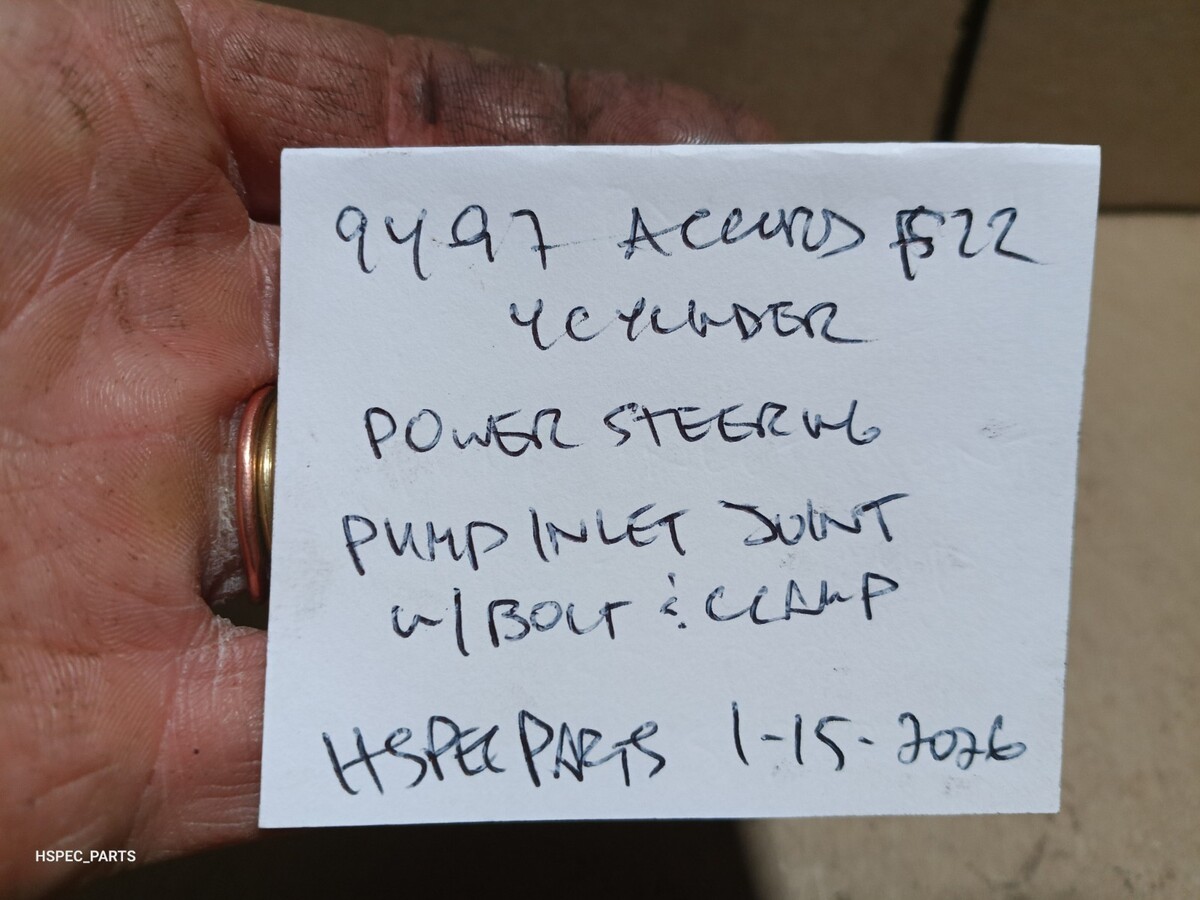 94-97 ACCORD F22
4 CYLINDER
POWER STEERING
PUMP INLET JOINT
W/ BOLT & CLAMP
HSPEC PARTS 1-15-2026
HSPEC_PARTS